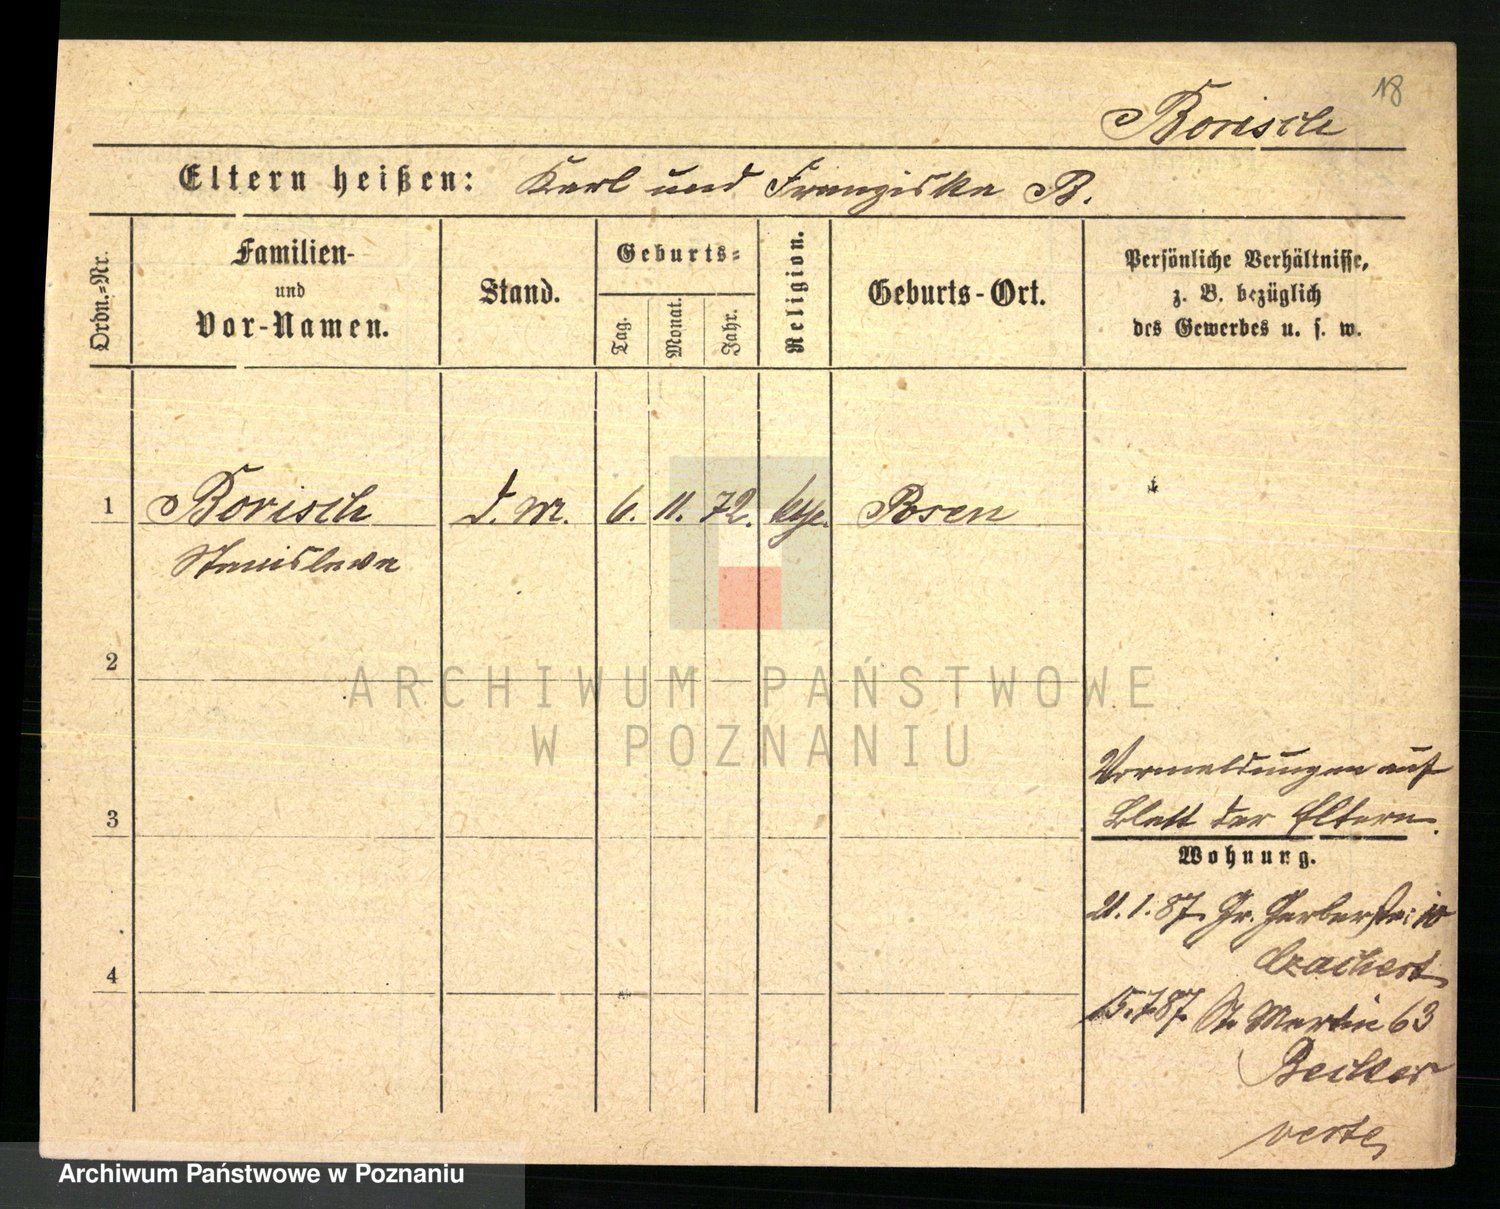 18
Borisch
Eltern heißen: Karl und Franziska B.
Ordn.-Nr.
Familien-
und
Vor-Namen.
Stand.
Geburts-
Tag.
Monat.
Jahr.
Religion.
Geburts-Ort.
Persönliche Verhältnisse,
z. B. bezüglich
des Gewerbes u. s. w.
1 Borisch d. M. 6. 11. 72. Posen
Stanislawa
2
ARCHIWUM PAŃSTWOWE
W POZNANIU
Vormeldungen auf
3 Blatt der Eltern.
Wohnung.
21.1.87. Gr. Gerberstr: 10
4
15.7.87 St. Martin 63
Becker
verte
Archiwum Państwowe w Poznaniu